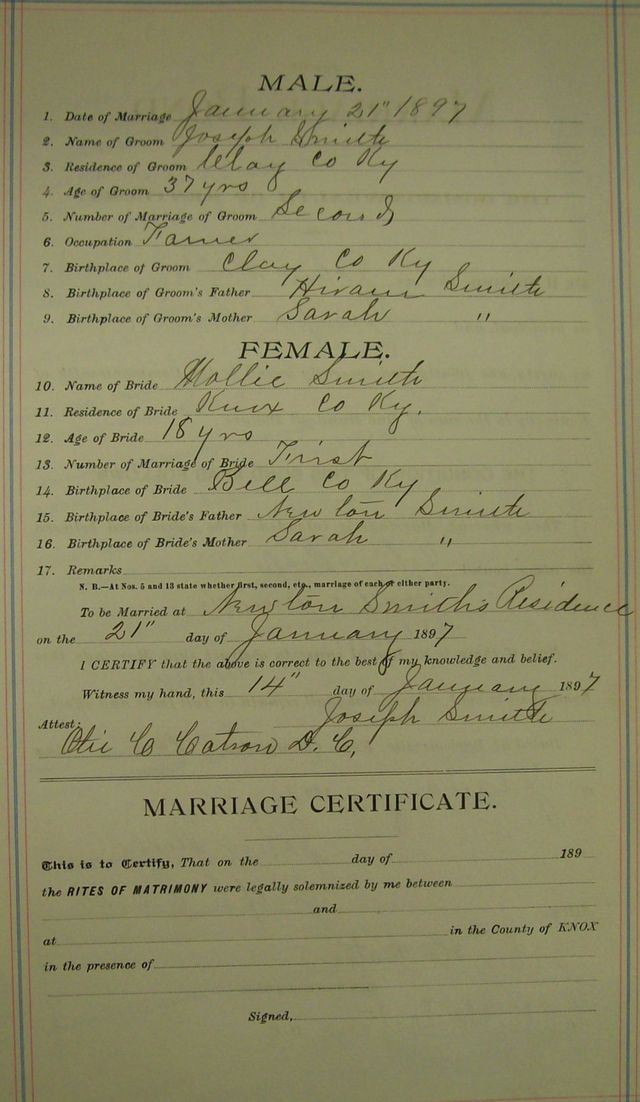 MALE.
1. Date of Marriage January 21" 1897
2. Name of Groom Joseph Smith
3. Residence of Groom Clay Co Ky
4. Age of Groom 37 yrs
5. Number of Marriage of Groom Second
6. Occupation Farmer
7. Birthplace of Groom Clay Co Ky
8. Birthplace of Groom's Father Hiram Smith
9. Birthplace of Groom's Mother Sarah "
FEMALE.
10. Name of Bride Mollie Smith
11. Residence of Bride Knox Co Ky.
12. Age of Bride 18 yrs
13. Number of Marriage of Bride First
14. Birthplace of Bride Bell Co Ky
15. Birthplace of Bride's Father Newton Smith
16. Birthplace of Bride's Mother Sarah "
17. Remarks
N. B.—At Nos. 5 and 13 state whether first, second, etc., marriage of each or either party.
To be Married at Newton Smith's Residence
on the 21" day of January 1897
I CERTIFY that the above is correct to the best of my knowledge and belief.
Witness my hand, this 14" day of January 1897
Joseph Smith
Attest:
C Catron D. C.
MARRIAGE CERTIFICATE.
This is to Certify, That on the day of 189
the RITES OF MATRIMONY were legally solemnized by me between
and
at in the County of KNOX
in the presence of
Signed,